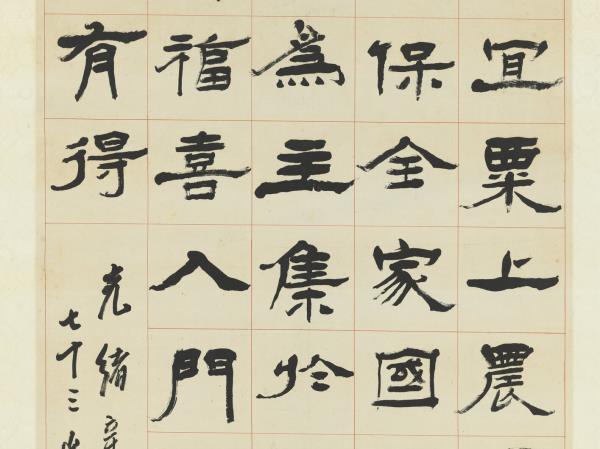 宜粟上農
保全家國
為主集於
福喜入門
有得
光緒辛
七十三